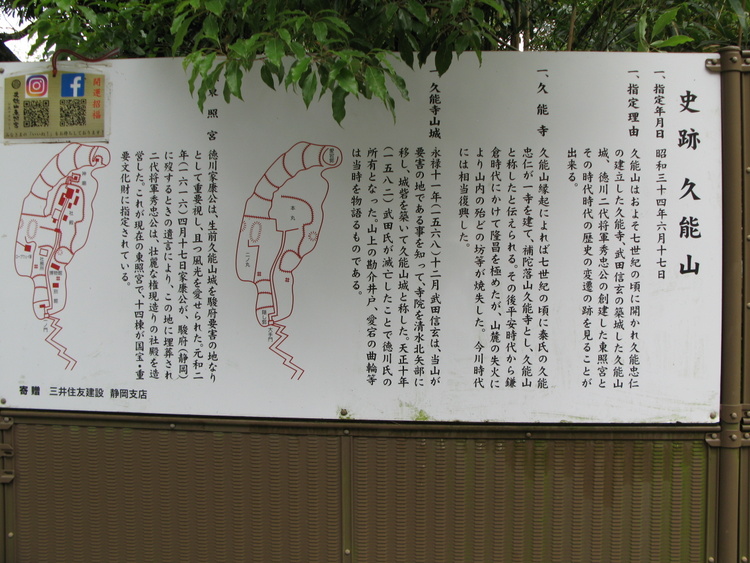 史跡 久能山
一、指定年月日 昭和三十四年六月十七日
一、指定理由 久能山はおよそ七世紀の頃に開かれ久能忠仁
の建立した久能寺、武田信玄の築城した久能山
城、徳川二代将軍秀忠公の創建した東照宮と
その時代時代の歴史の変遷の跡を見ることが
出来る。
一、久能寺 久能山縁起によれば七世紀の頃に秦氏の久能
忠仁が一寺を建て、補陀落山久能寺とし、久能山
と称したと伝えられる。その後平安時代から鎌
倉時代にかけて隆昌を極めたが、山麓の失火に
より山内の殆どの坊等が焼失した。今川時代
には相当復興した。
一、久能寺山城 永禄十一年(一五六八)十二月武田信玄は、当山が
要害の地である事を知って、寺院を清水北矢部に
移し、城砦を築いて久能山城と称した。天正十年
(一五八二)武田氏が滅亡したことで徳川氏の
所有となった。山上の勘介井戸、愛宕の曲輪等
は当時を物語るものである。
東照宮 徳川家康公は、生前久能山城を駿府要害の地なり
として重要視し、且つ風光を愛せられた。元和二
年(一六一六)四月十七日家康公が、駿府(静岡)
に歿するときの遺言により、この地に埋葬され
二代将軍秀忠公は、壮麗な権現造りの社殿を造
営した。これが現在の東照宮で十四棟が国宝・重
要文化財に指定されている。
本丸
二ノ丸
寄贈 三井住友建設 静岡支店
開運招福